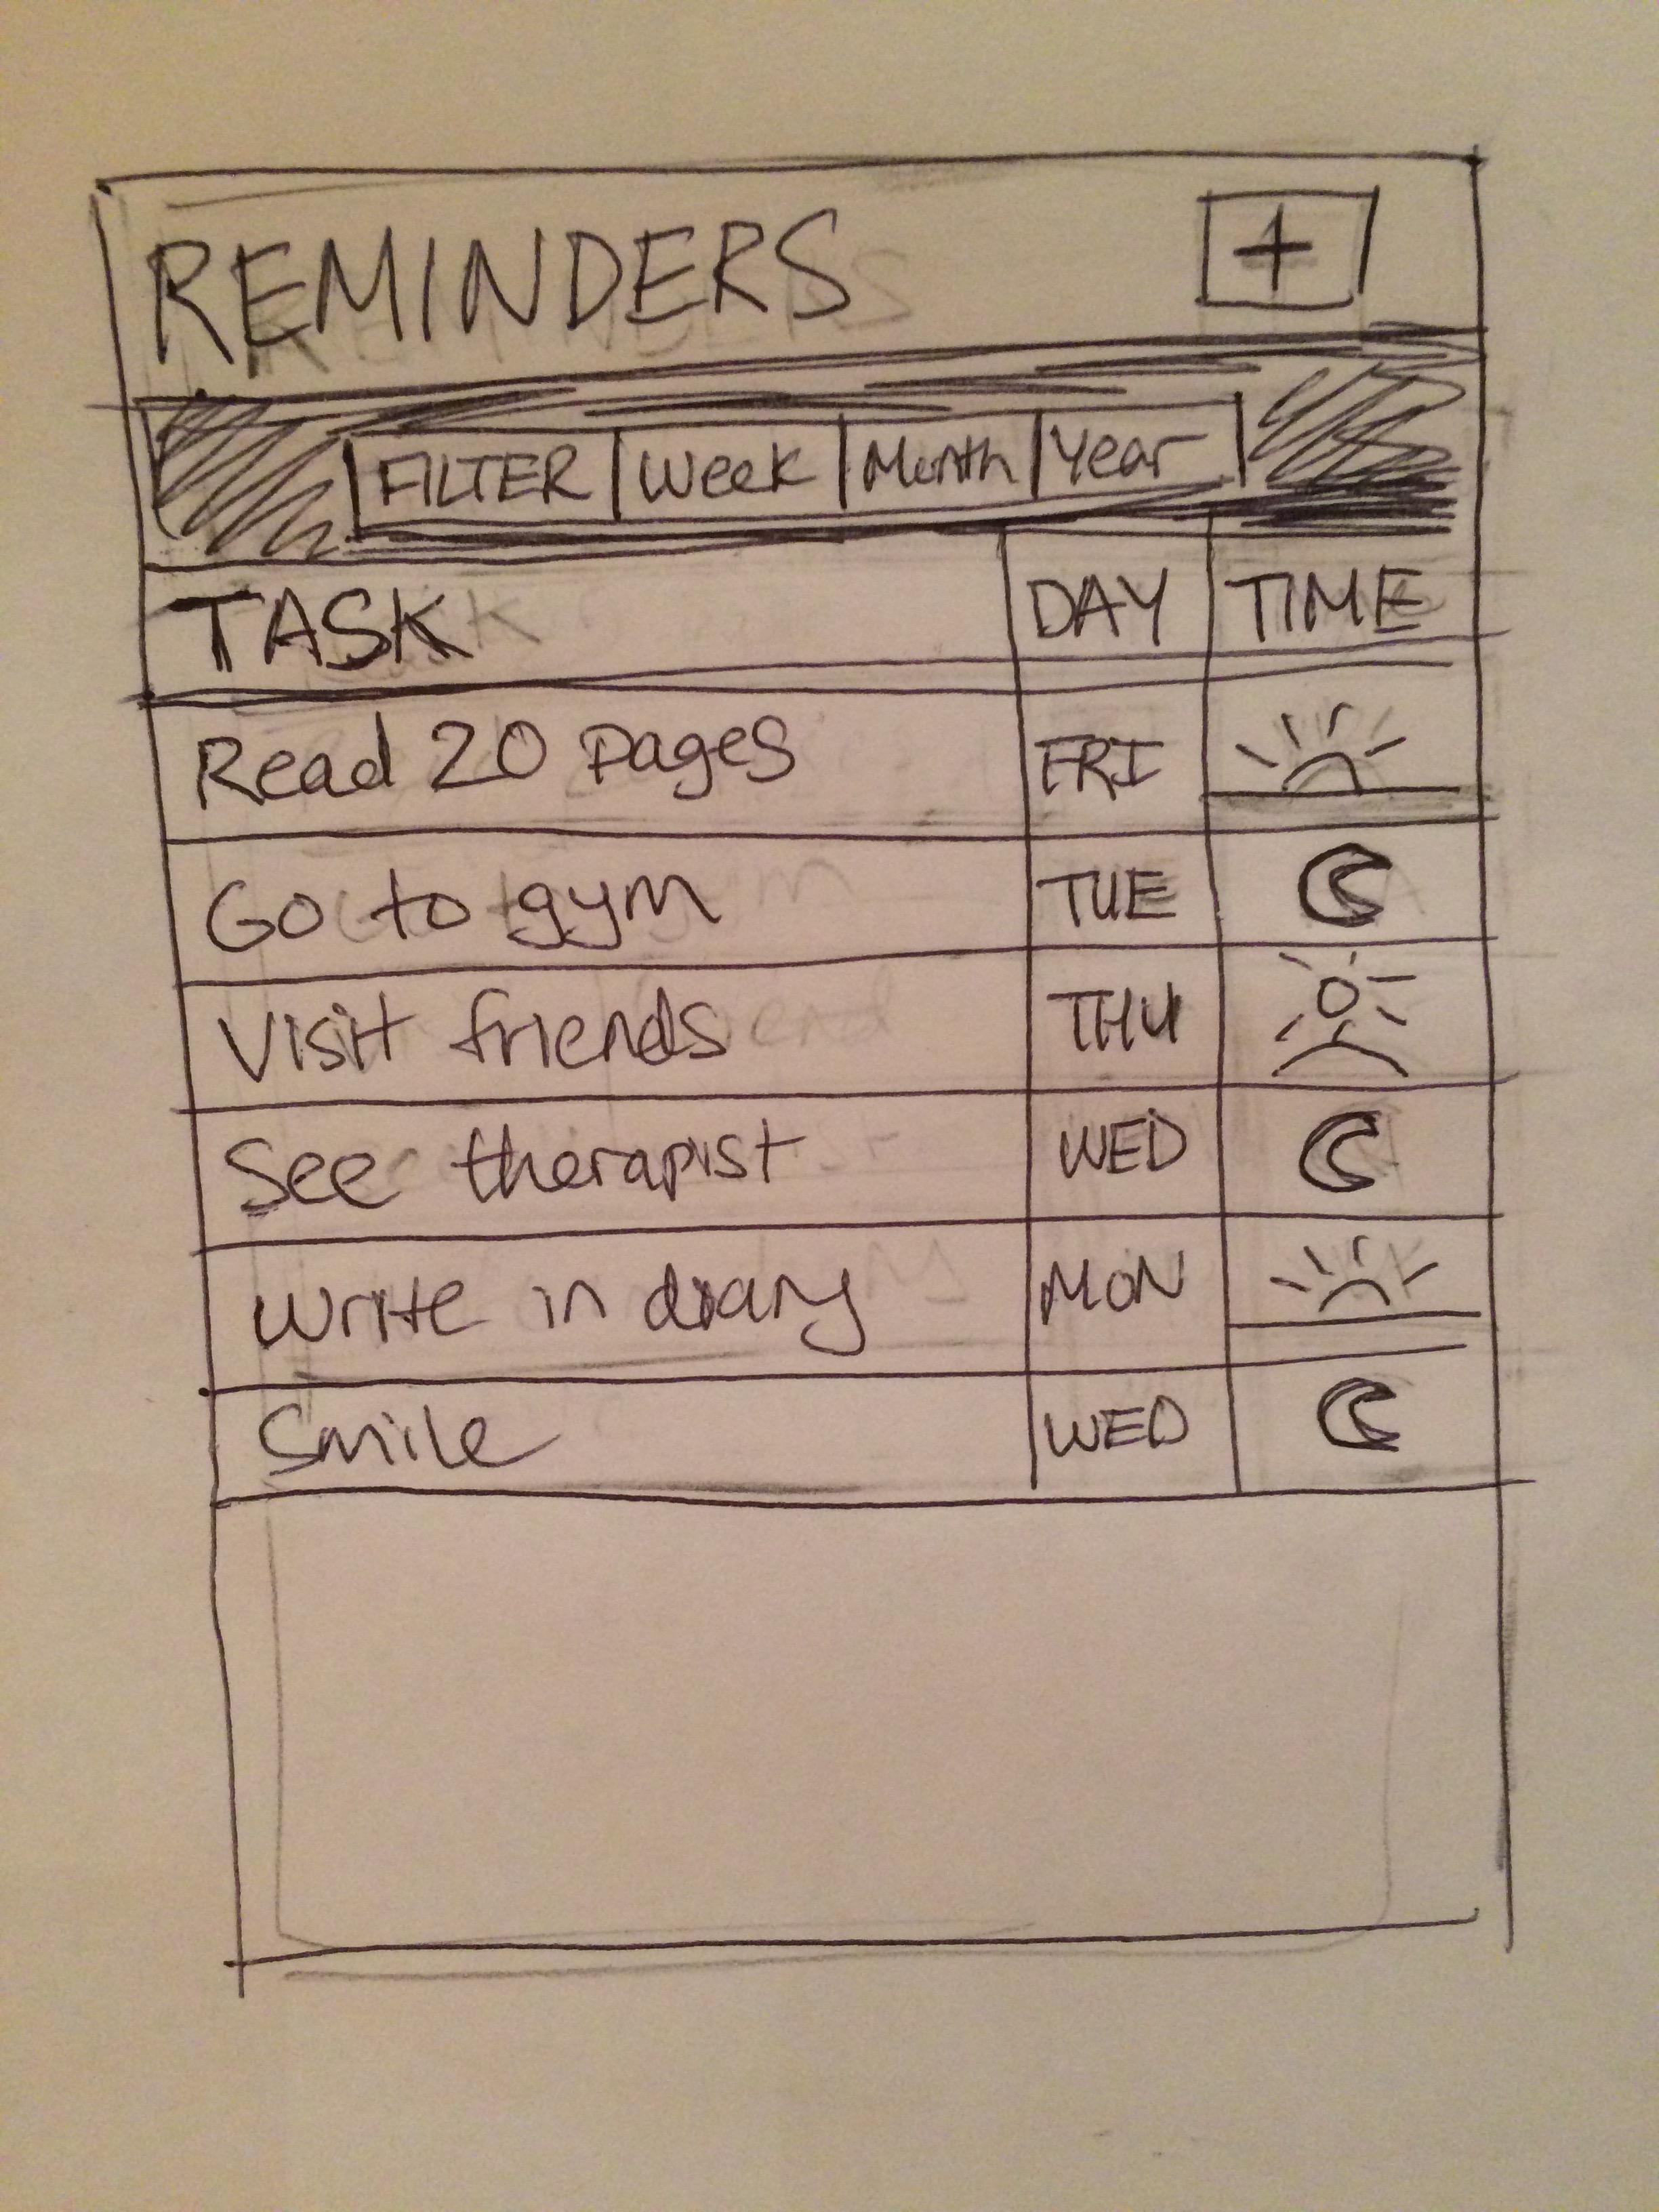 REMINDERS +
FILTER Week Month Year
TASK DAY TIME
Read 20 pages FRI
Go to gym TUE
Visit friends THU
See therapist WED
Write in diary MON
Smile WED